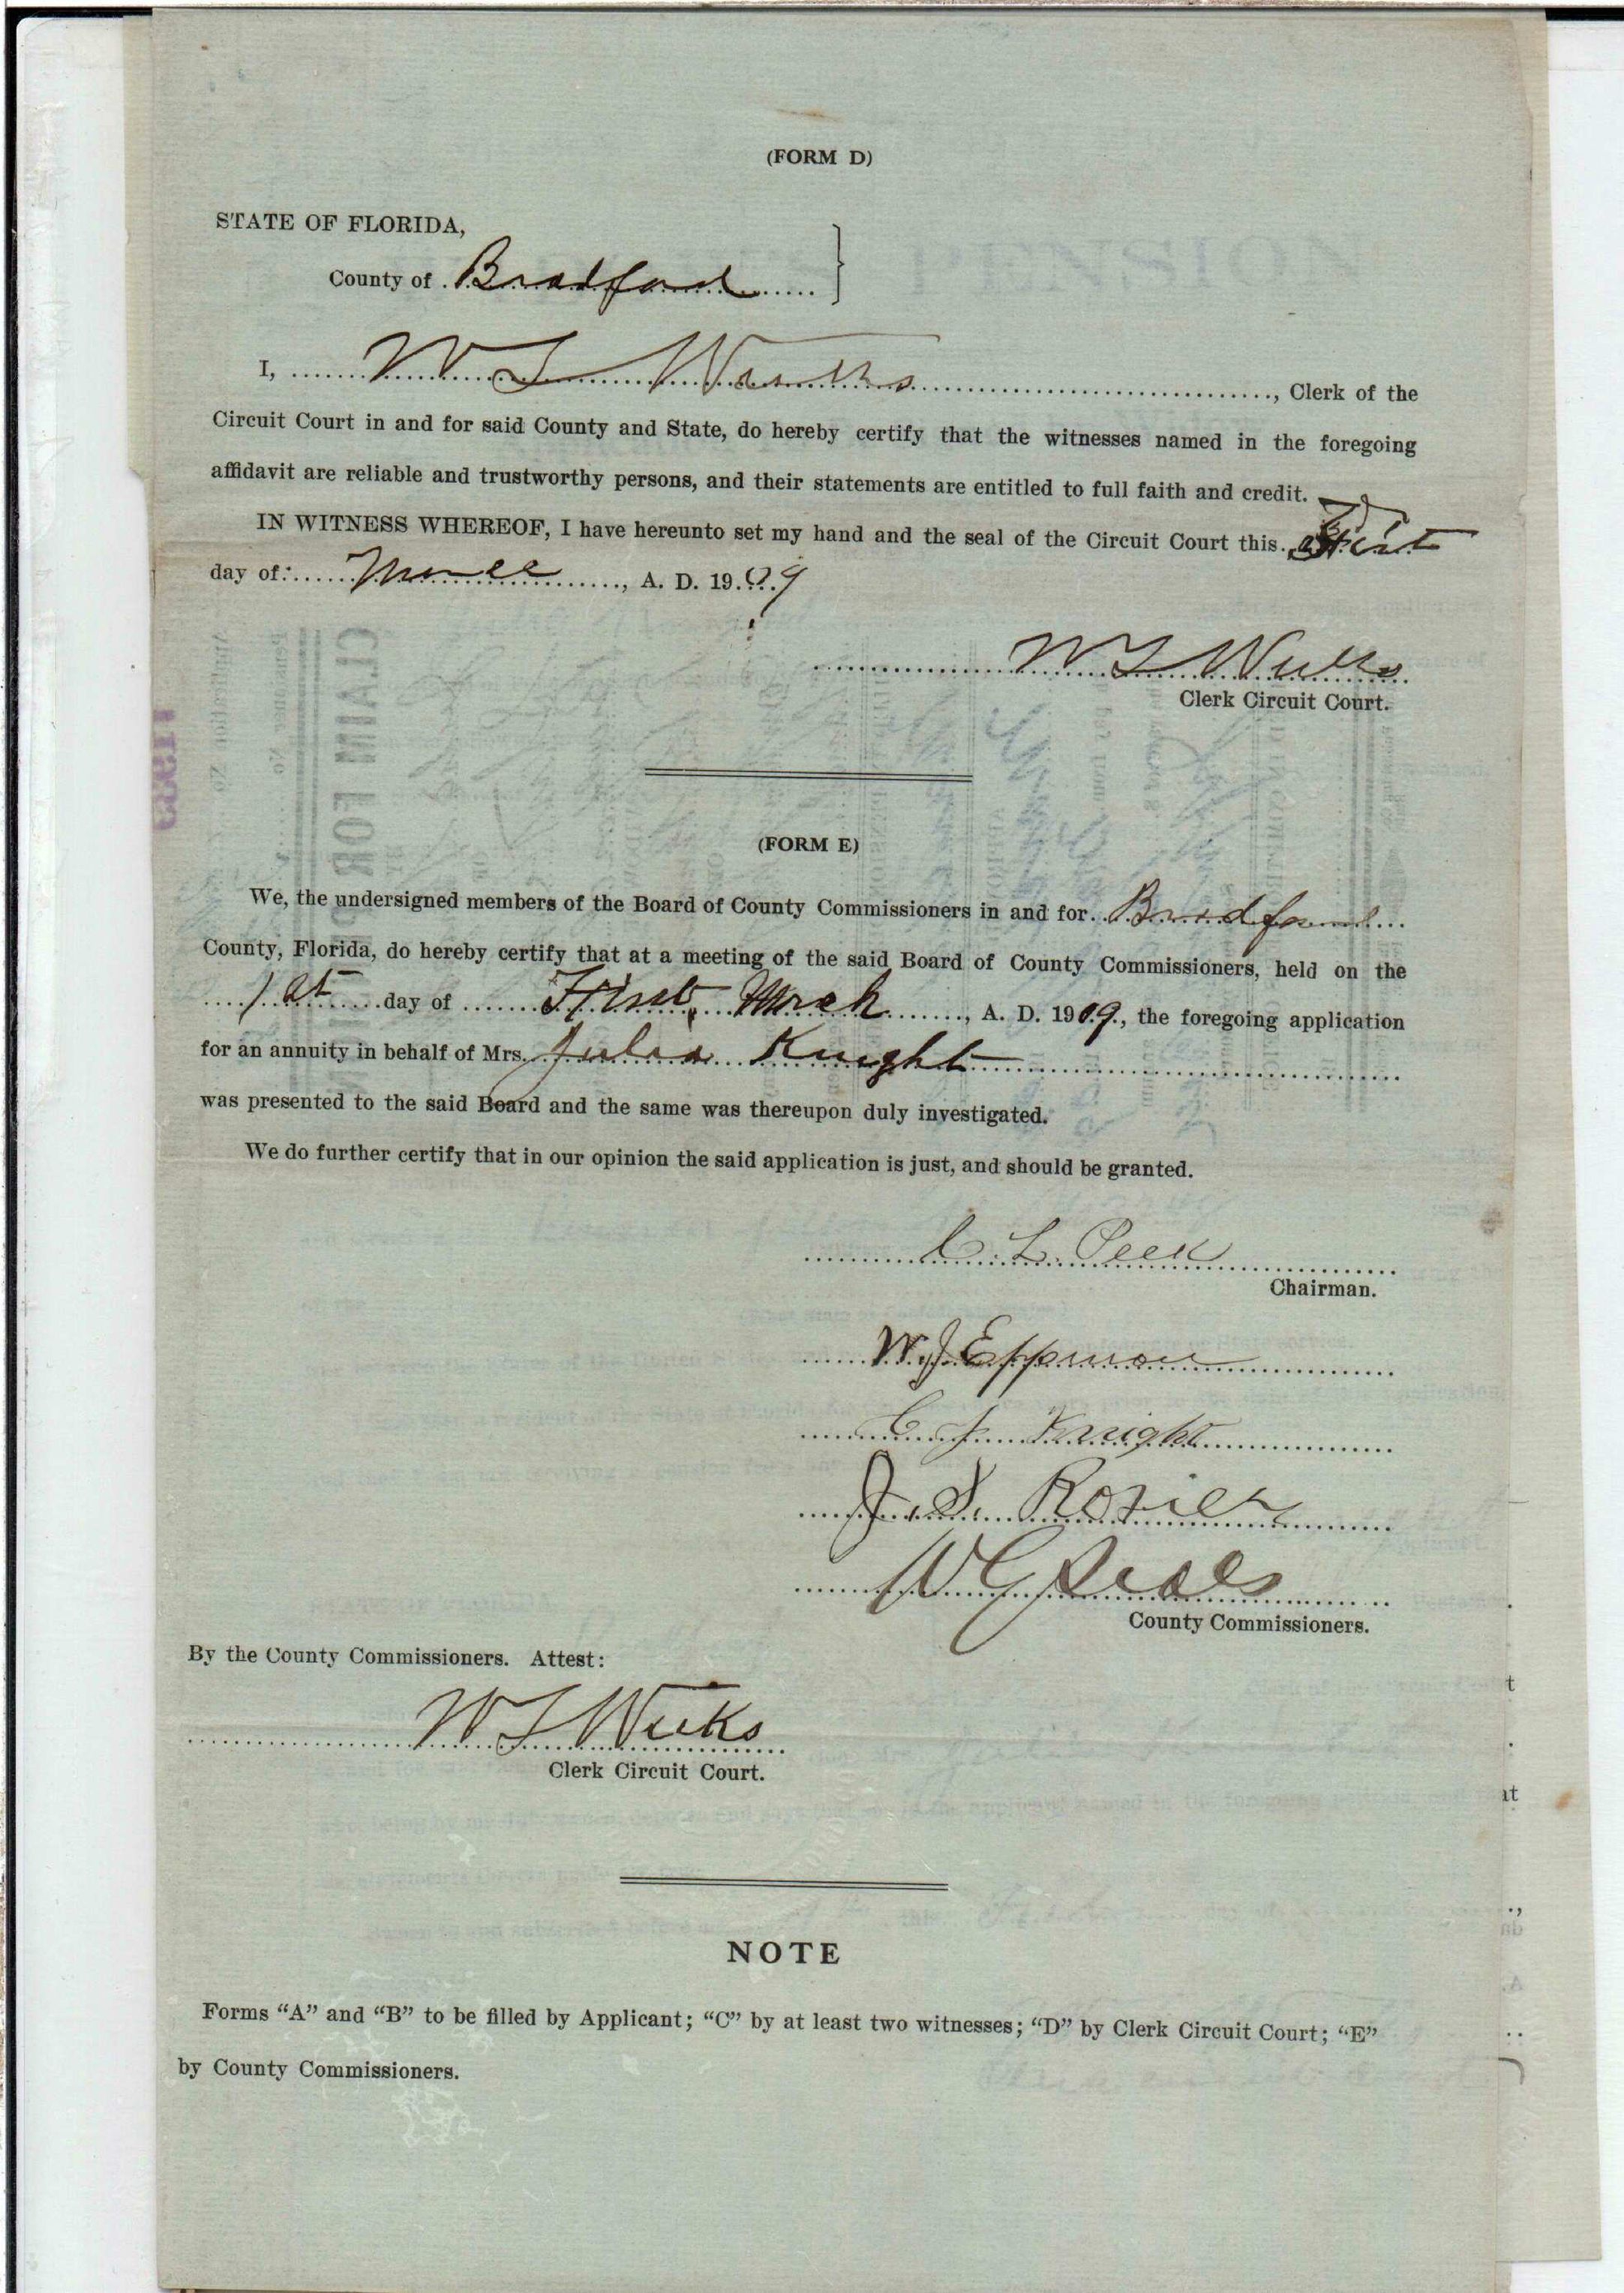 (FORM D)
STATE OF FLORIDA,
County of Bradford
I, W T Weeks, Clerk of the
Circuit Court in and for said County and State, do hereby certify that the witnesses named in the foregoing
affidavit are reliable and trustworthy persons, and their statements are entitled to full faith and credit.
IN WITNESS WHEREOF, I have hereunto set my hand and the seal of the Circuit Court this First
day of, A. D. 1909
W T Weeks
Clerk Circuit Court.
(FORM E)
We, the undersigned members of the Board of County Commissioners in and for Bradford
County, Florida, do hereby certify that at a meeting of the said Board of County Commissioners, held on the
1st day of First, A. D. 1909, the foregoing application
for an annuity in behalf of Mrs. Julia Knight
was presented to the said Board and the same was thereupon duly investigated.
We do further certify that in our opinion the said application is just, and should be granted.
C. L. Peek
Chairman.
W. J. Epperson
C J Knight
J. S. Rosier
W G
County Commissioners.
By the County Commissioners. Attest:
W T Weeks
Clerk Circuit Court.
NOTE
Forms “A” and “B” to be filled by Applicant; “C” by at least two witnesses; “D” by Clerk Circuit Court; “E”
by County Commissioners.